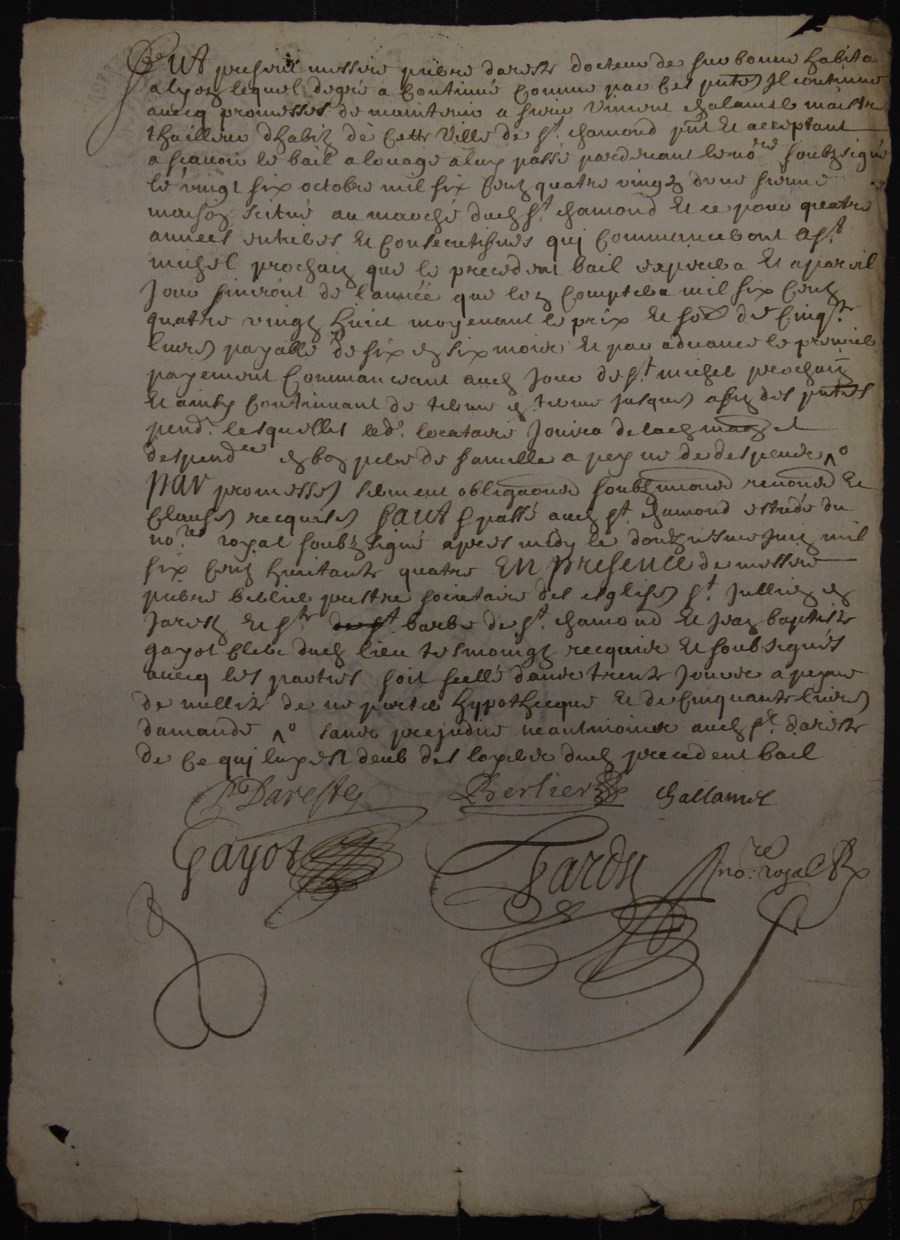 Fut present messire pierre dareste docteur de sorbonne habita
a lyon lequel de gré a Continué Comme par Ces pntes Il continue
avecq promesses de maintenir a sieur Vincent chalamel maistre
thailleur dhabitz de Cette Ville de st. chamond pnt Et acceptant
a sçavoir le bail a louage a luy passé pardevant le nore. soubzsigné
le vingt six octobre mil six Centz quatre vingtz dune sienne
maison scitué au marché dud st. chamond Et ce pour quatre
années entieres Et Consecutifves quy Commanceront a st.
michel prochain que le precedent bail expirera Et a pareil
Jour finiront de l'année que lon Comptera mil six Centz
quatre vingtz huict moyenant le prix Et so͠e de Cinqte.
livres payable de six en six mois Et par advance le premier
payement Commanceant aud Jour de st. michel prochain
Et ainsy Continuant de terme en terme Jusques a fin des pntes
pendt. lesquelles led. locataire Jouira de lad maison et
despendce en bon pere de famille a peyne de despens ^o
par promesses serment obligaons soubzmissions renons Et
Clauses requises faict Et passé aud st. chamond estude du
nore. royal soubzsigné apres midy le douziesme Juin mil
six Centz huictante quatre En presence de messire
pierre berlier prestre societaire des esglises st. Jullien en
Jarestz Et ste. barbe de st. chamond Et Jean baptiste
gayot Clerc dud lieu tesmoingtz requis Et soubsignés
avecq les parties soit scellé dans trente Jours a peyne
de nullité de ne porter hypothecque Et de Cinquante livres
damande ^o sans prejudice neantmoins aud sr. dareste
de Ce quy luy est deub des loyers dud precedent bail
P Dareste Berlier challamel
Gayot Tardy nore. royal